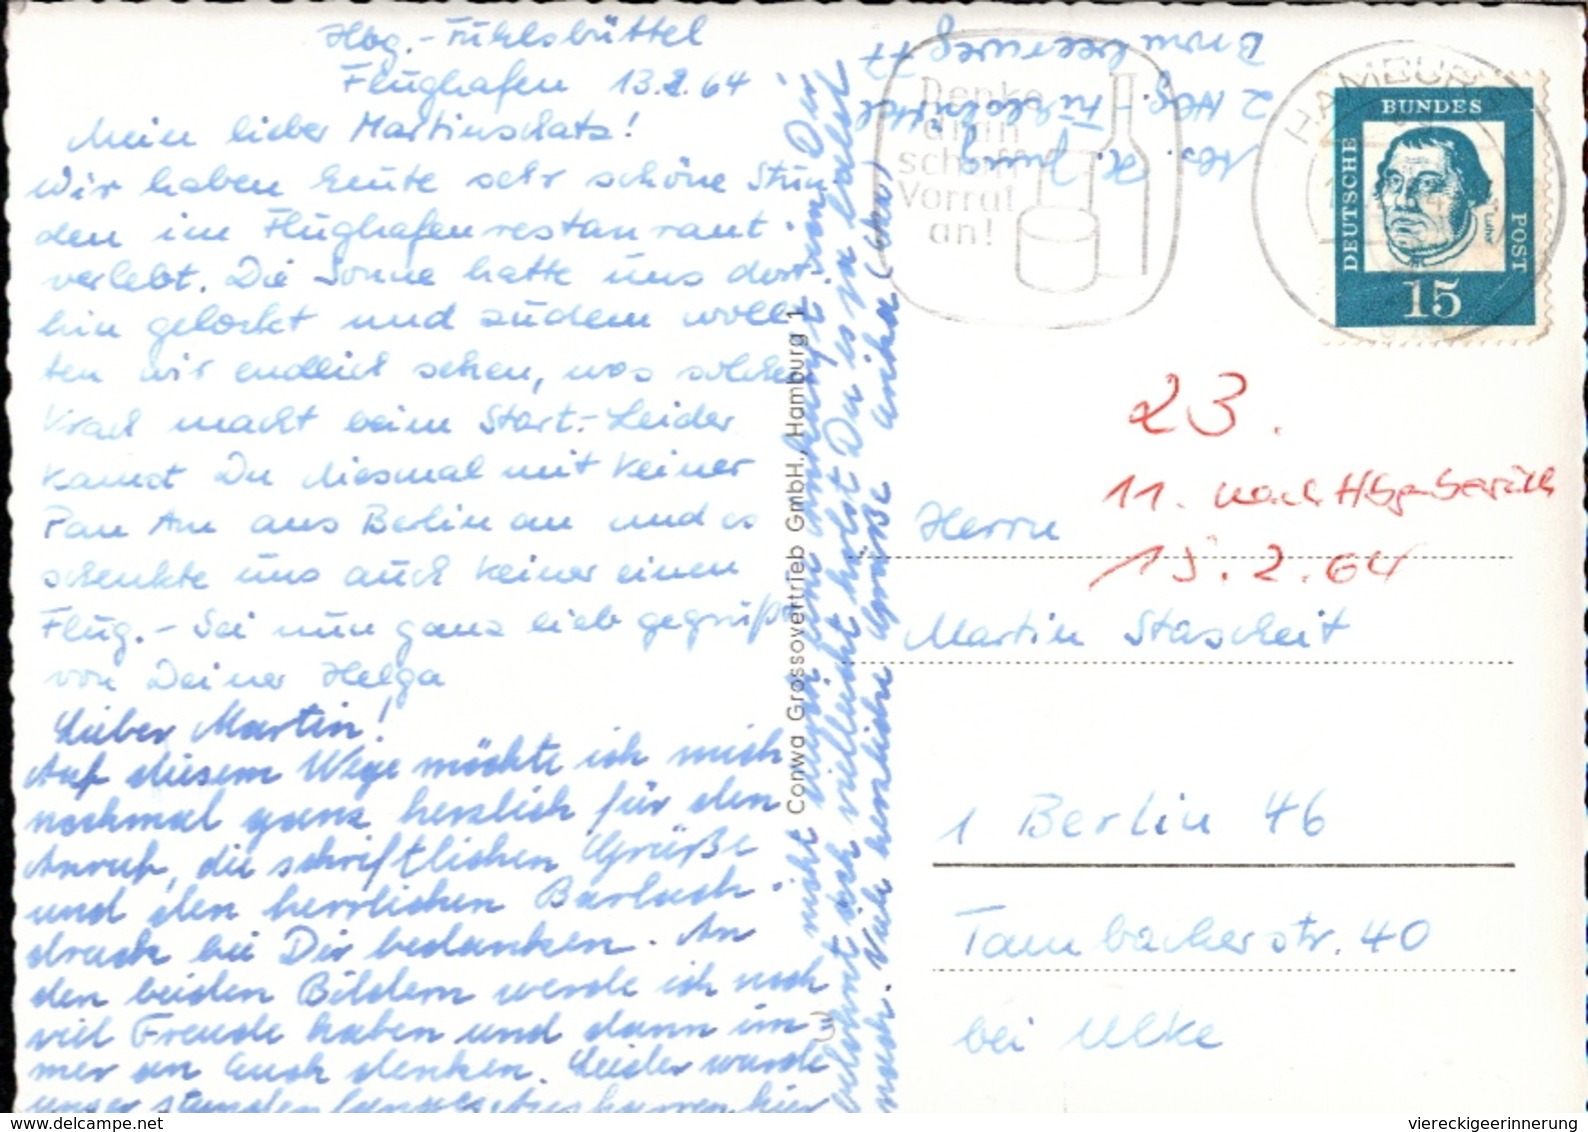 Hbg.-Fuhlsbüttel
Flughafen 13.2.64
Mein lieber Martinschatz!
Wir haben heute sehr schöne Stun
den im Flughafenrestaurant
verlebt. Die Sonne hatte uns dort
hin gelockt und zudem woll
ten wir endlich sehen, was solchen
Krach macht beim Start.- Leider
kamst Du diesmal mit keiner
Pan Am aus Berlin an und es
schenkte uns auch keiner einen
Flug.- Sei nun ganz lieb gegrüßt
von Deiner Helga
Lieber Martin!
Auf diesem Wege möchte ich mich
nochmal ganz herzlich für den
Anruf, die schriftlichen Grüße
und den herrlichen Barlach-
druck bei Dir bedanken. An
den beiden Bildern werde ich noch
viel Freude haben und dann im=
mer an Euch denken. Leider wurde
unser stundenlanges Ausharren hier
nicht durch
belohnt doch vielleicht holst Du es
nach. Viele herzliche Grüße
Conwa Grossovertrieb GmbH., Hamburg 1
Abs. H. Jung
2 Hbg.-Fuhlsbüttel
Brombeerweg 77
Denke
dran
schaff
Vorrat
an!
HAMBURG
DEUTSCHE
BUNDES
POST
Luther
15
23.
11. nach Hbg-besuch
15.2.64
Herrn
Martin Stascheit
1 Berlin 46
Tambacherstr. 40
bei Ulke
delcampe.net
viereckigeerinnerung